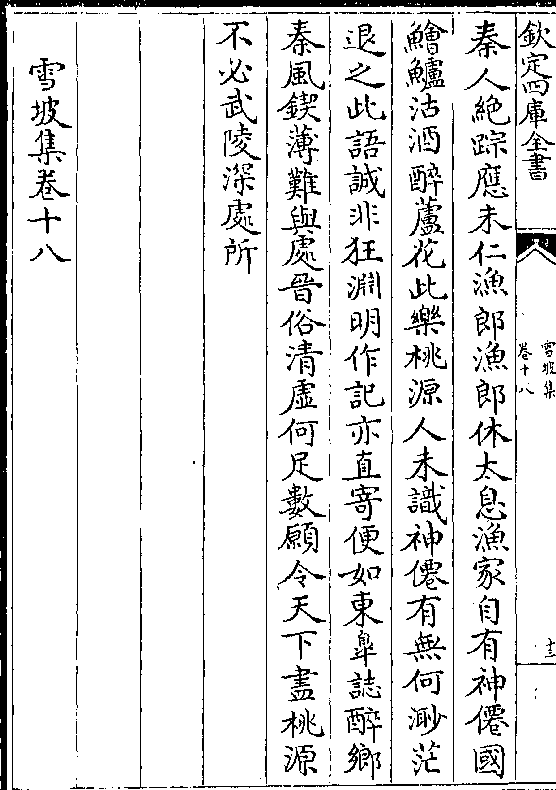 欽定四庫全書
雪坡集
卷十八
十三
秦人絶踪應未仁漁郎漁郎休太息漁家自有神僊國
鱠鱸沽酒醉蘆花此樂桃源人未識神僊有無何渺茫
退之此語誠非狂淵明作記亦直寄便如東臯誌醉鄉
秦風鍥薄難與處晉俗清虚何足數願令天下盡桃源
不必武陵深處所
雪坡集卷十八